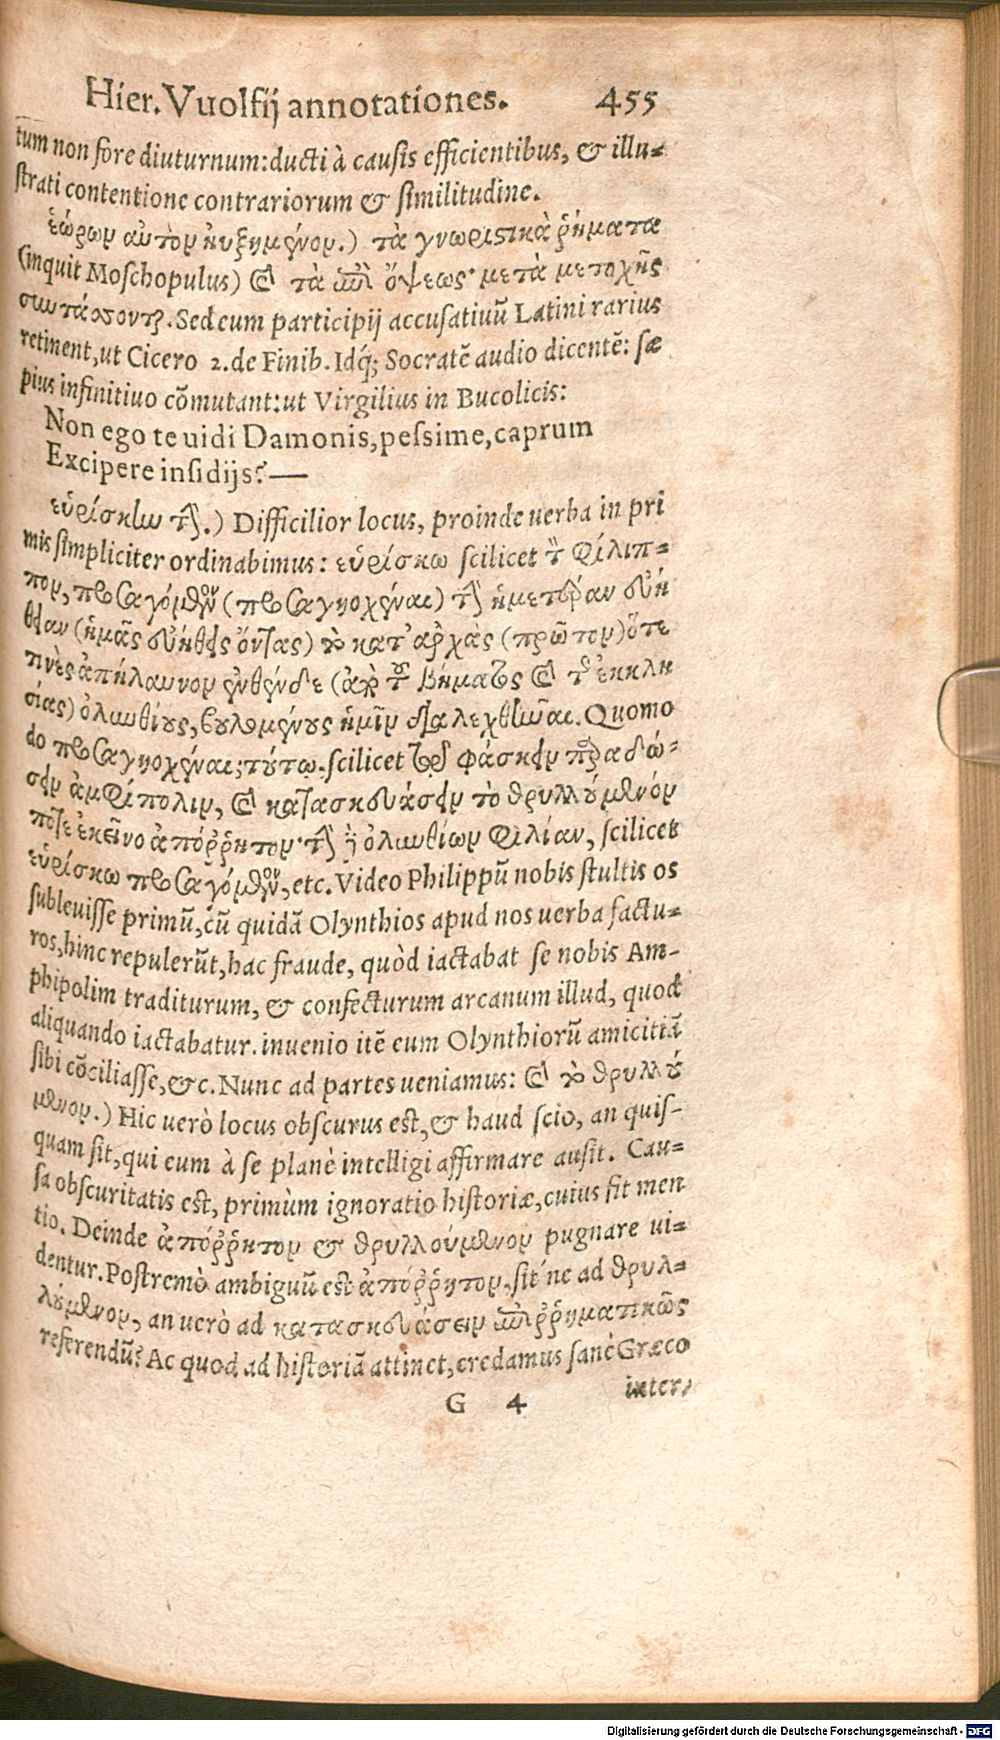 Hier. Vuolfij annotationes. 455
tum non fore diuturnum: ducti à causis efficientibus, & illu-
strati contentione contrariorum & similitudine.
ἑώρων αὐτὸν ηὐξημένον.) τὰ γνωριστικὰ ῥήματα
(inquit Moschopulus) καὶ τὰ ἐπὶ ὄψεως· μετὰ μετοχῆς
συντάσσονται. Sed eum participij accusatiuũ Latini rarius
retinent, ut Cicero 2. de Finib. Idq́; Socratẽ audio dicentẽ: sæ
pius infinitiuo cõmutant: ut Virgilius in Bucolicis:
Non ego te uidi Damonis, pessime, caprum
Excipere insidijs? —
εὑρίσκω τὴν.) Difficilior locus, proinde uerba in pri
mis simpliciter ordinabimus: εὑρίσκω scilicet τὸν Φίλιπ-
πον, προσαγόμενον (προσαγηοχέναι) τὴν ἡμετέραν εὐή
θειαν (ἡμᾶς εὐήθεις ὄντας) τὸ κατ' ἀρχὰς (πρῶτον) ὅτε
τινὲς ἀπήλαυνον ἐνθένδε (ἀπὸ τοῦ βήματος καὶ τῆς ἐκκλη
σίας) ὀλυνθίους, βουλομένους ἡμῖν διαλεχθῆναι. Quomo
do προσαγηοχέναι; τούτῳ. scilicet τῷ φάσκειν παραδώ-
σειν ἀμφίπολιν, καὶ κατασκευάσειν τὸ θρυλλούμενόν
ποτε ἐκεῖνο ἀπόῤῥητον· τὴν τῶν ὀλυνθίων φιλίαν, scilicet
εὑρίσκω προσαγόμενον, etc. Video Philippũ nobis stultis os
subleuisse primũ, cũ quidã Olynthios apud nos uerba factu-
ros, hinc repulerũt, hac fraude, quòd iactabat se nobis Am-
phipolim traditurum, & confecturum arcanum illud, quod
aliquando iactabatur. inuenio itẽ eum Olynthiorũ amicitiã
sibi cõciliasse, &c. Nunc ad partes ueniamus: καὶ τὸ θρυλλού
μενον.) Hic uerò locus obscurus est, & haud scio, an quis-
quam sit, qui eum à se planè intelligi affirmare ausit. Cau-
sa obscuritatis est, primùm ignoratio historiæ, cuius fit men
tio. Deinde ἀπόῤῥητον & θρυλλούμενον pugnare ui-
dentur. Postremò ambiguũ est ἀπόῤῥητον, sit'ne ad θρυλ-
λούμενον, an uerò ad κατασκευάσειν ἐπιῤῥηματικῶς
referendũ? Ac quod ad historiã attinet, credamus sanè Græco
G 4 inter-
Digitalisierung gefördert durch die Deutsche Forschungsgemeinschaft - DFG